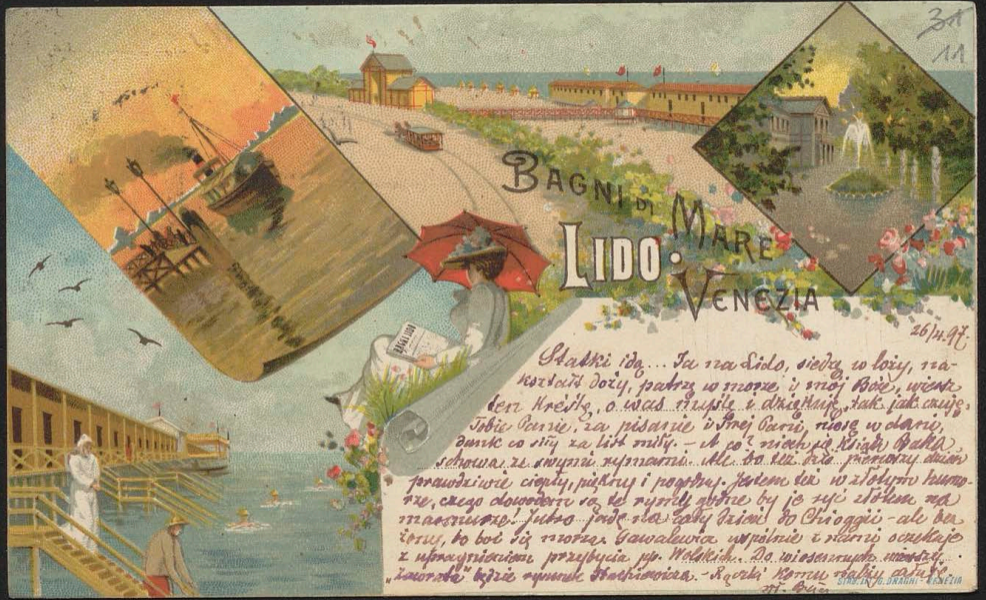 31
11
BAGNI DI
MARE
LIDO.
VENEZIA
26/4.97.
Statki idą... Ja na Lido, siedzę w loży, na-
kształt doży, patrzę w morze i mój Boże, wiersz
ten kreślę, o was myślę i dziękuję, tak jak czuję.
Tobie Panie, za pisanie i Twej Pani, niosę w dani,
dank co siły za list miły. – A co? niech się Ksiądz Baka
schowa ze swymi rymami. Ale bo też dziś pierwszy dzień
prawdziwie ciepły, piękny i pogodny. Jestem też w złotym humo-
rze, czego dowodem są te rymy godne by je ryć złotem na
marmurze! Jutro jadę na cały dzień do Chioggii – ale bez
żony, bo boi się morza. Gawalewicz wspólnie z nami oczekuje
z upragnieniem przybycia pp. Wolskich. Do wiosennych
będzie rysunek Stachiewicza. – Rączki komu należy całuję
STAB. LIT. G. DRAGHI - VENEZIA